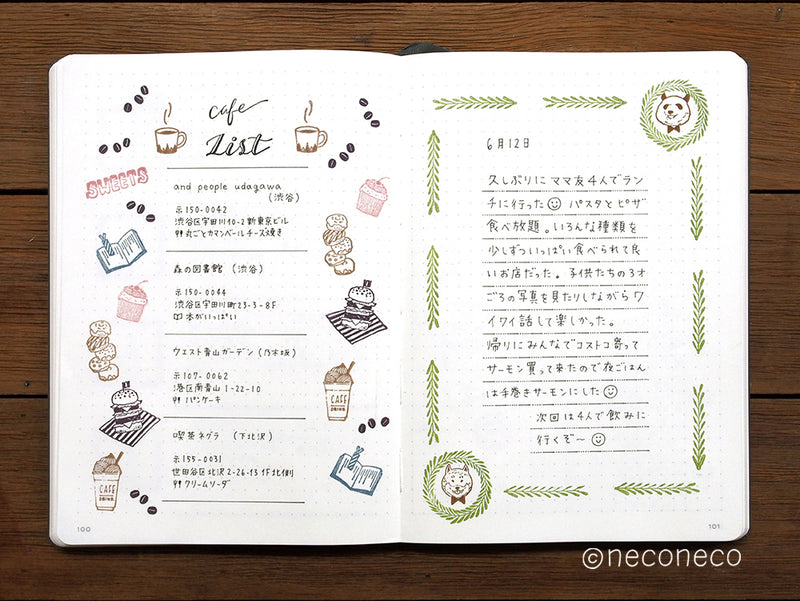 cafe
List
SWEETS
and people udagawa
(渋谷)
〒150-0042
渋谷区宇田川町10-2新東京ビル
丸ごとカマンベールチーズ焼き
森の図書館 (渋谷)
〒150-0044
渋谷区宇田川町23-3-8F
本がいっぱい
ウエスト青山ガーデン(乃木坂)
〒107-0062
港区南青山1-22-10
パンケーキ
喫茶ネグラ (下北沢)
〒155-0031
世田谷区北沢2-26-13 1F北側
クリームソーダ
CAFE
DRINK
CAFE
DRINK
100
6月12日
久しぶりにママ友4人でラン
チに行った パスタとピザ
食べ放題。いろんな種類を
少しずついっぱい食べられて良
いお店だった。子供たちの3才
ごろの写真を見たりしながらワ
イワイ話して楽しかった。
帰りにみんなでコストコ寄って
サーモン買って来たので夜ごはん
は手巻きサーモンにした
次回は4人で飲みに
行くぞ〜
101
©neconeco